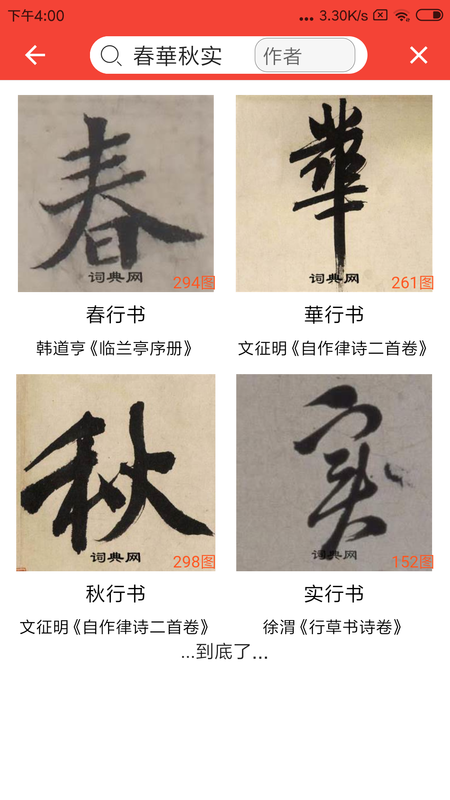 下午4:00
... 3.30K/s
春華秋实 作者
春 華
词典网 294图 词典网 261图
春行书 華行书
韩道亨《临兰亭序册》 文征明《自作律诗二首卷》
秋 实
词典网 298图 词典网 152图
秋行书 实行书
文征明《自作律诗二首卷》 徐渭《行草书诗卷》
...到底了...